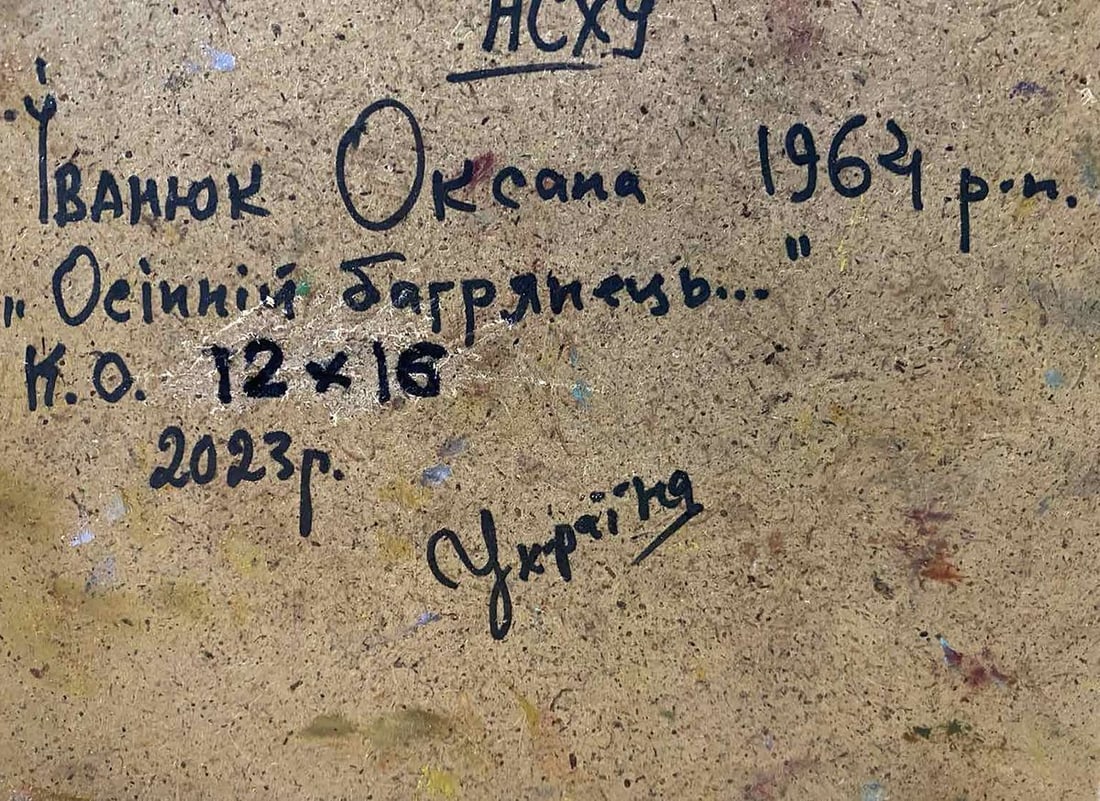 НСХУ
Іванюк Оксана 1964 р.н.
„Осінній багрянець..."
К.О. 12×16
2023р.
Україна